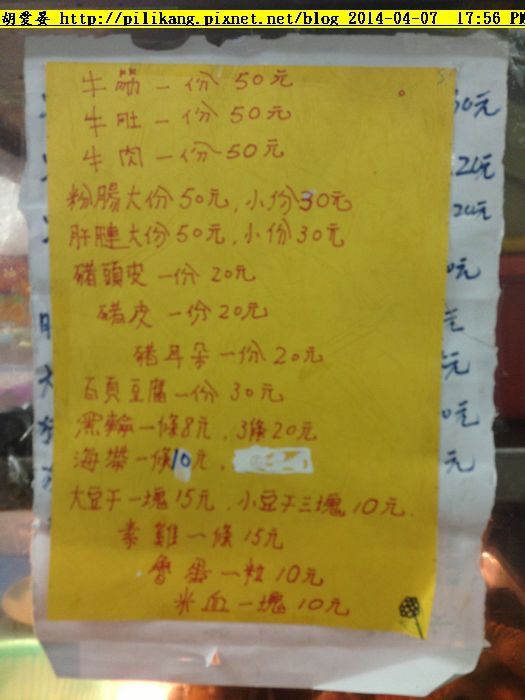 胡愛晏 http://pilikang.pixnet.net/blog 2014-04-07 17:56 PM
牛筋一份50元
牛肚一份50元
牛肉一份50元
粉腸大份50元,小份30元
肝腱大份50元,小份30元
豬頭皮一份20元
豬皮一份20元
豬耳朵一份20元
百頁豆腐一份30元
黑輪一條8元,3條20元
海帶一條10元,
大豆干一塊15元,小豆干三塊10元.
素雞一條15元
魯蛋一粒10元
米血一塊10元